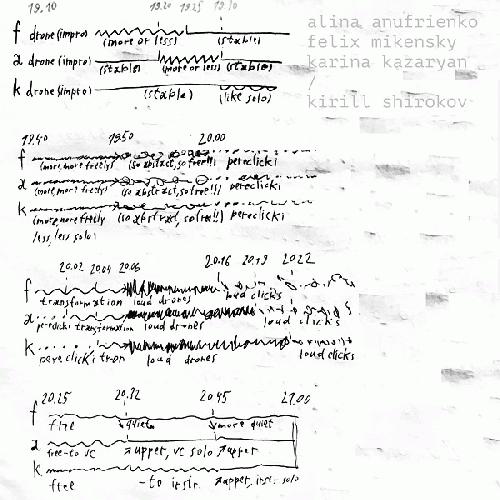 19.10 19.20 19.25 19.30
alina anufrienko
felix mikensky
karina kazaryan
kirill shirokov
f drone (impro)
(more or less) (stable)
a drone (impro)
(stable) (more or less) (stable)
k drone (impro)
(stable) (like solo)
19.40 19.50 20.00
f
(more, more freely) (so abstract, so free!!) pereclicki
a
(more, more freely) (so abstract, so free!!) pereclicki
k
(more, more freely (so abstract, so free!!) pereclicki
less, less solo)
20.02 20.04 20.06 20.16 20.19 20.22
f
transformation loud drones loud clicks
a
transformation loud drones loud clicks
k
loud drones loud clicks
20.25 20.32 20.45 21.00
f
free quiet more quiet
a
free - to vc upper, vc solo upper
k
free - to instr. upper, instr. solo